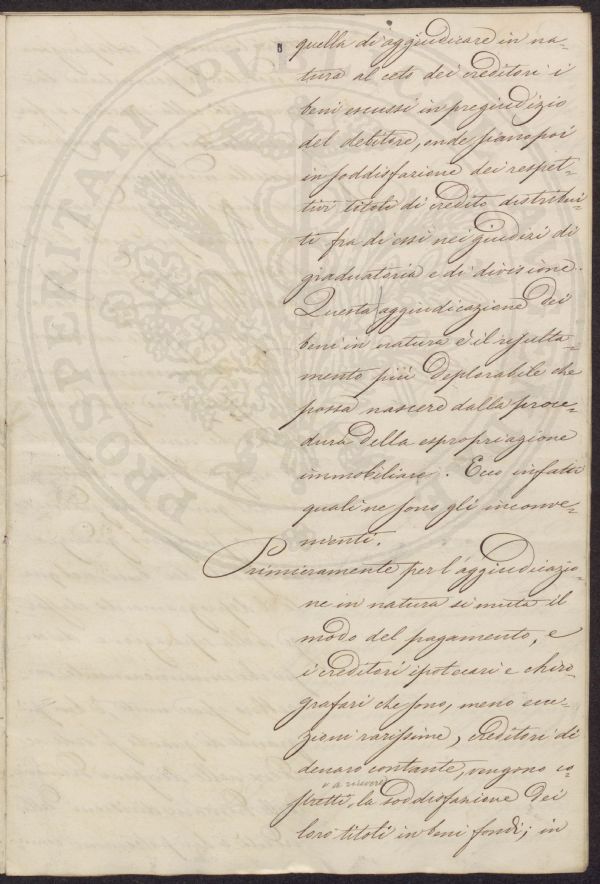 quella di aggiudicare in na-
tura al ceto dei creditori i
beni escussi in pregiudizio
del debitore, onde siano poi
in soddisfazione dei respet-
tivi titoli di credito distribui-
ti fra di essi nei giudizi di
graduatoria e di divisione.
Questa aggiudicazione dei
beni in natura è il resulta-
mento più deplorabile che
possa nascere dalla proce-
dura della espropriazione
immobiliare. Ecco infatti
quali ne sono gli inconve-
nienti.
Primieramente per l'aggiudicazio-
ne in natura si muta il
modo del pagamento, e
i creditori ipotecari e chiro-
grafari che sono, meno ecce-
zioni rarissime, creditori di
denaro contante, vengono co-
a ricevere
stretti, la soddisfazione dei
loro titoli in beni fondi; in
PROSPERITATI PUBLICAE